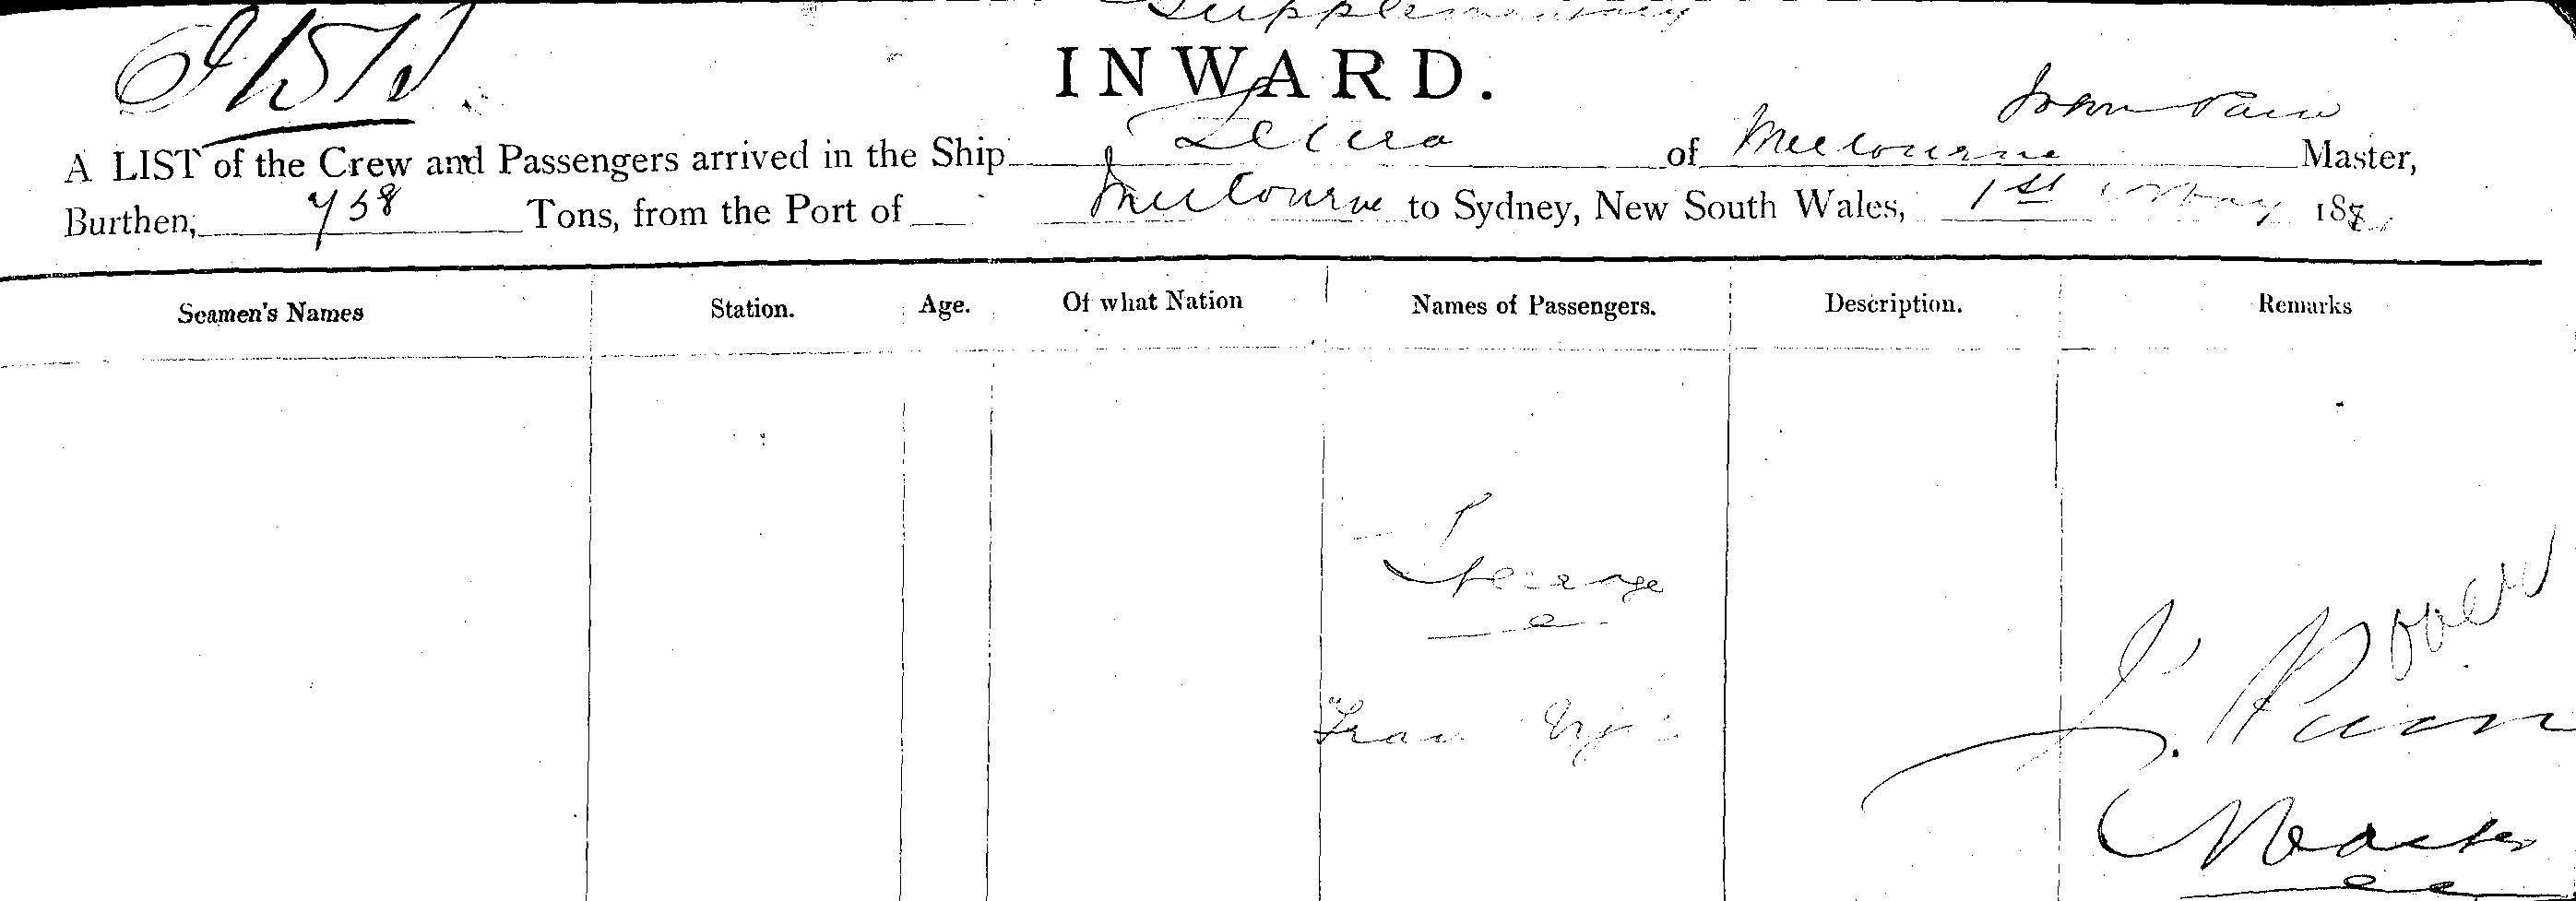 Supplementary
INWARD.
John Pain
A LIST of the Crew and Passengers arrived in the Ship of Melbourne Master,
Burthen, 758 Tons, from the Port of Melbourne to Sydney, New South Wales, 1st May 188
Seamen's Names Station. Age. Of what Nation Names of Passengers. Description. Remarks
Steerage
J. Pain
Master